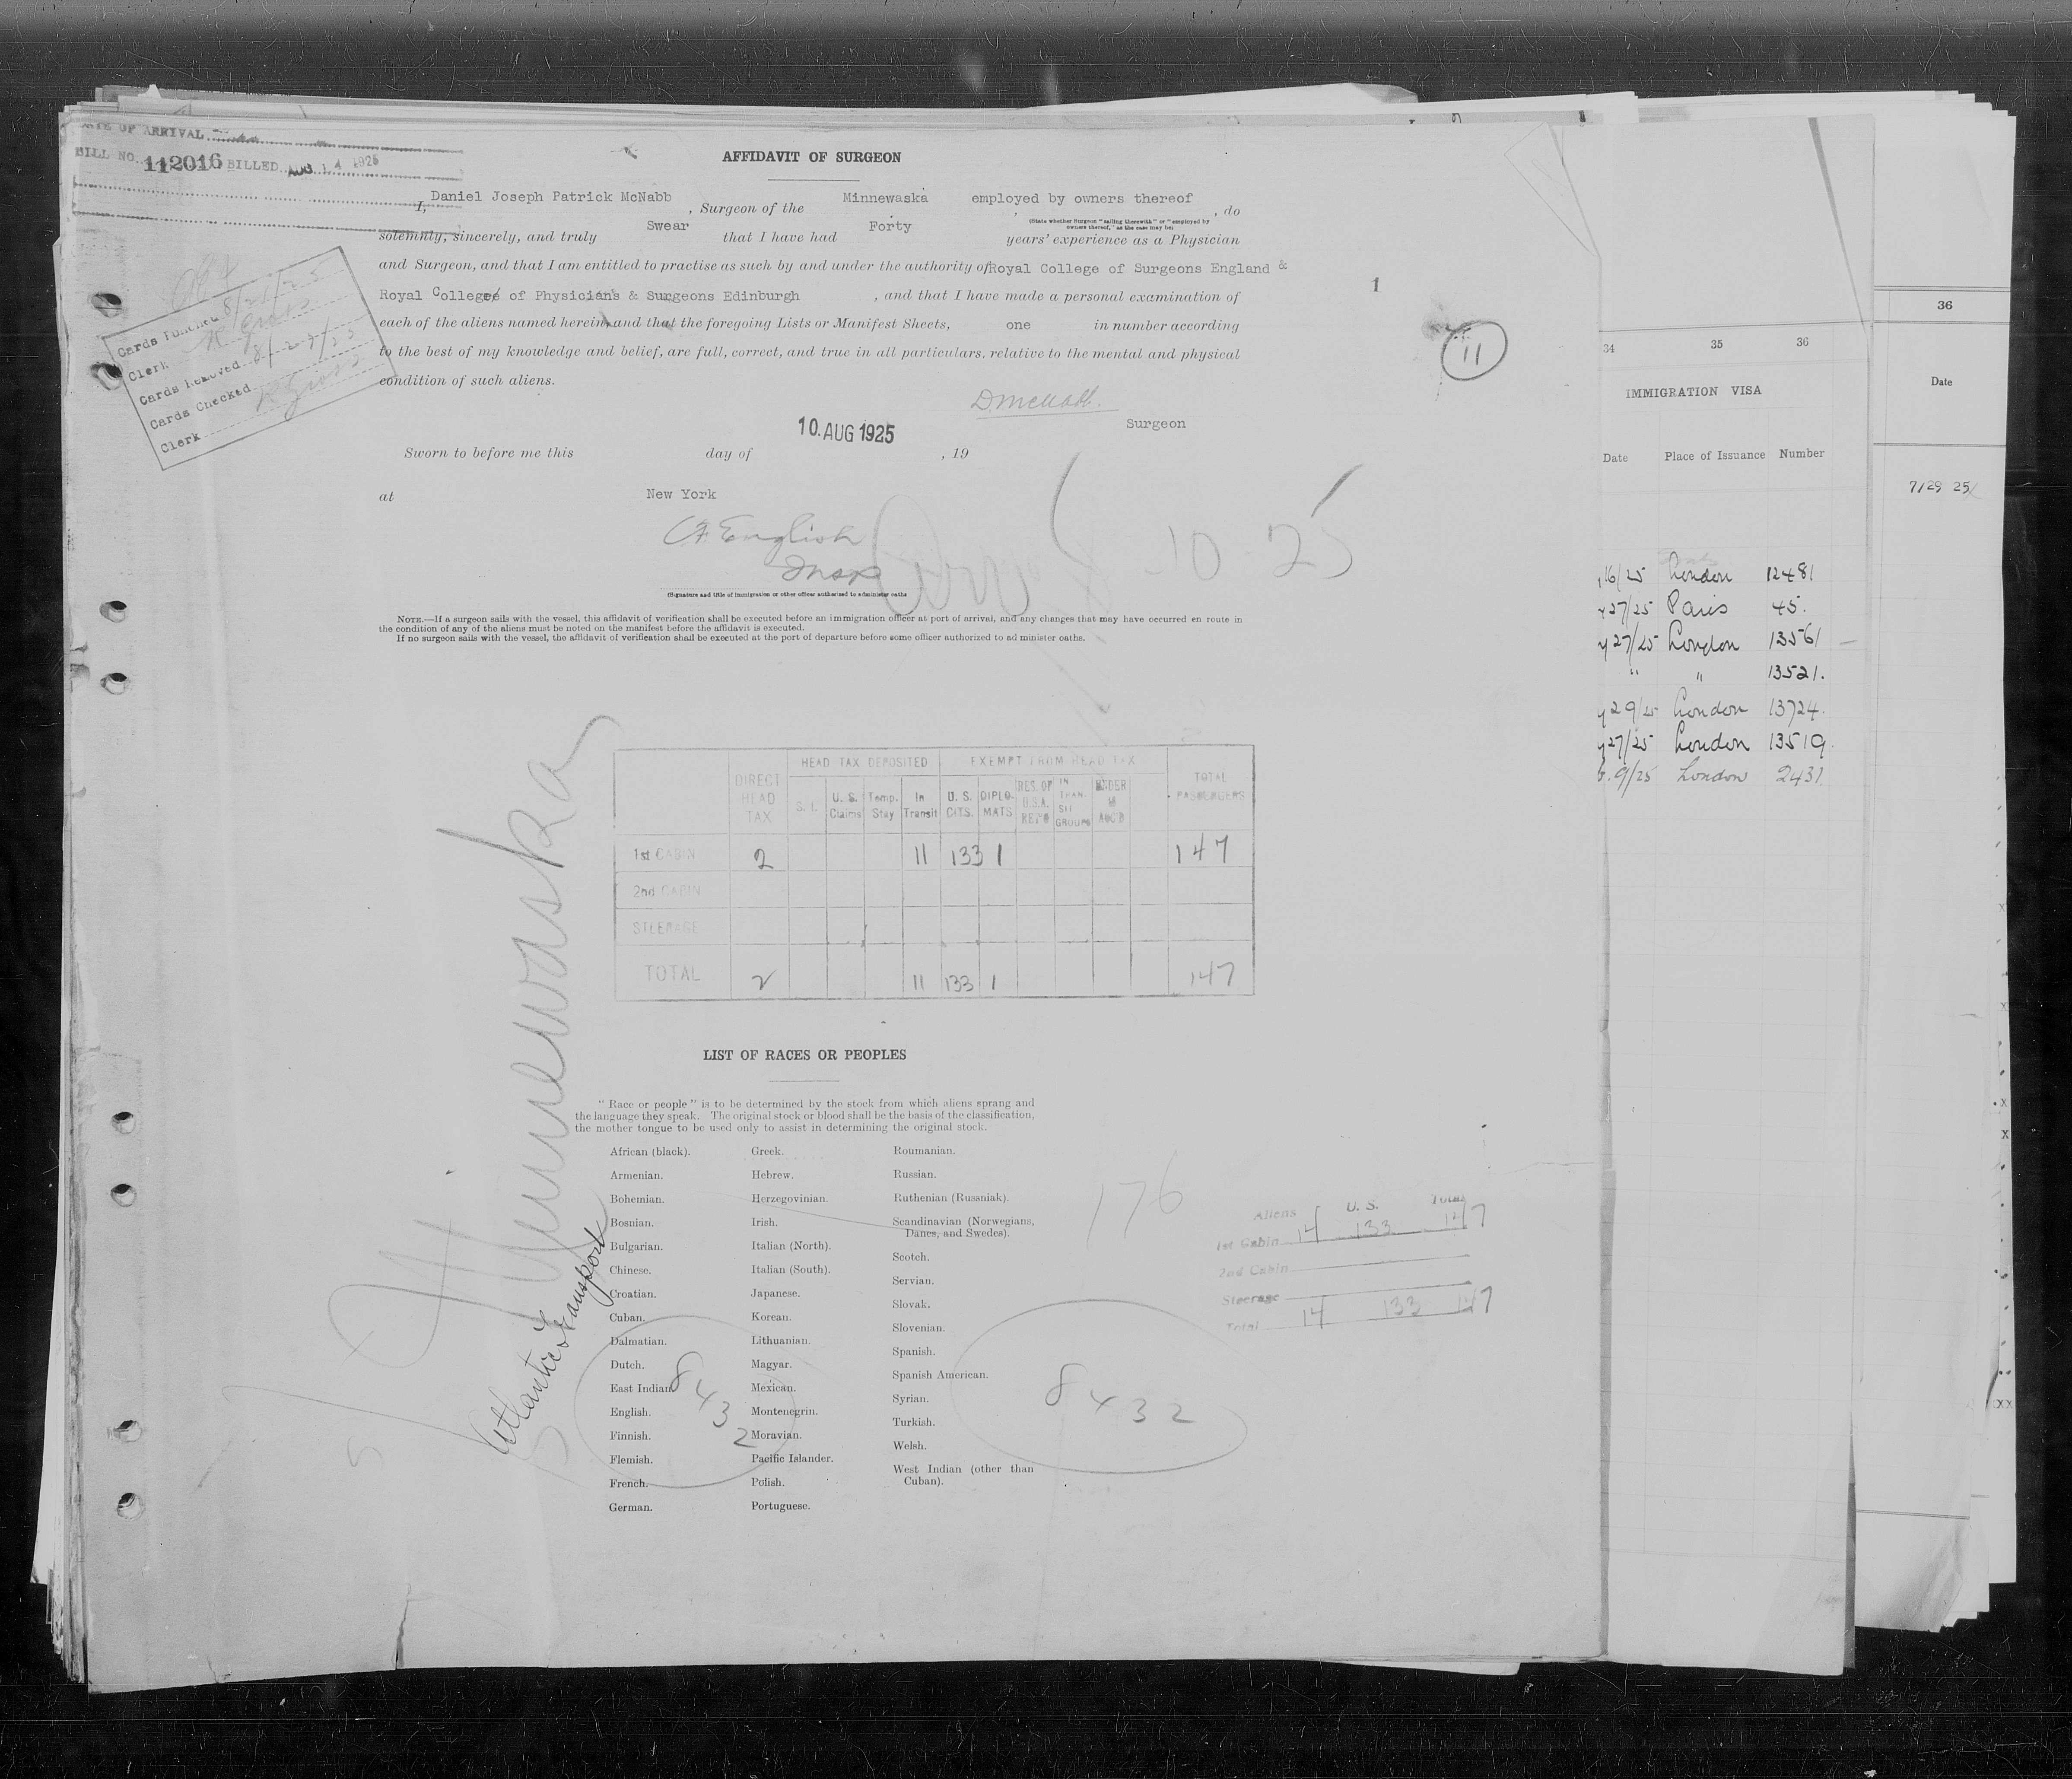 DATE OF ARRIVAL
BILL NO. 112016 BILLED AUG 14 1925
AFFIDAVIT OF SURGEON
I, Daniel Joseph Patrick McNabb, Surgeon of the Minnewaska, employed by owners thereof, do
(State whether Surgeon "sailing therewith" or "employed by
owners thereof," as the case may be)
solemnly, sincerely, and truly Swear that I have had Forty years' experience as a Physician
and Surgeon, and that I am entitled to practise as such by and under the authority of Royal College of Surgeons England &
Royal College of Physicians & Surgeons Edinburgh, and that I have made a personal examination of
each of the aliens named herein, and that the foregoing Lists or Manifest Sheets, one in number according
to the best of my knowledge and belief, are full, correct, and true in all particulars, relative to the mental and physical
condition of such aliens.
Cards Punched 8/21/25
Clerk
Cards Removed
Cards Checked
Clerk
1
11
D McNabb.
Surgeon
10 AUG 1925
Sworn to before me this day of , 19
at New York
English
Insp
10-25
(Signature and title of immigration or other officer authorised to administer oaths
NOTE.—If a surgeon sails with the vessel, this affidavit of verification shall be executed before an immigration officer at port of arrival, and any changes that may have occurred en route in
the condition of any of the aliens must be noted on the manifest before the affidavit is executed.
If no surgeon sails with the vessel, the affidavit of verification shall be executed at the port of departure before some officer authorized to administer oaths.
Minnewaska
Atlantic Transport
DIRECT HEAD TAX
HEAD TAX DEPOSITED
EXEMPT FROM HEAD TAX
TOTAL PASSENGERS
S. I. U. S. Claims Temp. Stay In Transit U. S. CITS. DIPLO-MATS RES. OF U.S.A. RET'G IN TRAN-SIT GROUPS UNDER 16 ACC'D
1st CABIN 2 11 133 1 147
2nd CABIN
STEERAGE
TOTAL 2 11 133 1 147
LIST OF RACES OR PEOPLES
"Race or people" is to be determined by the stock from which aliens sprang and
the language they speak. The original stock or blood shall be the basis of the classification,
the mother tongue to be used only to assist in determining the original stock.
African (black).
Armenian.
Bohemian.
Bosnian.
Bulgarian.
Chinese.
Croatian.
Cuban.
Dalmatian.
Dutch.
East Indian.
English.
Finnish.
Flemish.
French.
German.
Greek.
Hebrew.
Herzegovinian.
Irish.
Italian (North).
Italian (South).
Japanese.
Korean.
Lithuanian.
Magyar.
Mexican.
Montenegrin.
Moravian.
Pacific Islander.
Polish.
Portuguese.
Roumanian.
Russian.
Ruthenian (Russniak).
Scandinavian (Norwegians,
Danes, and Swedes).
Scotch.
Servian.
Slovak.
Slovenian.
Spanish.
Spanish American.
Syrian.
Turkish.
Welsh.
West Indian (other than
Cuban).
8432
8432
176
Aliens U. S. Total
1st Cabin 14 133 147
2nd Cabin
Steerage
Total 14 133 147
34 35 36
IMMIGRATION VISA
Date Place of Issuance Number
16/25 London 12481
y 27/25 Paris 45.
y 27/25 London 13561
" " 13521.
y 29/25 London 13724.
y 27/25 London 13519.
9/25 London 2431
36
Date
7/29 25